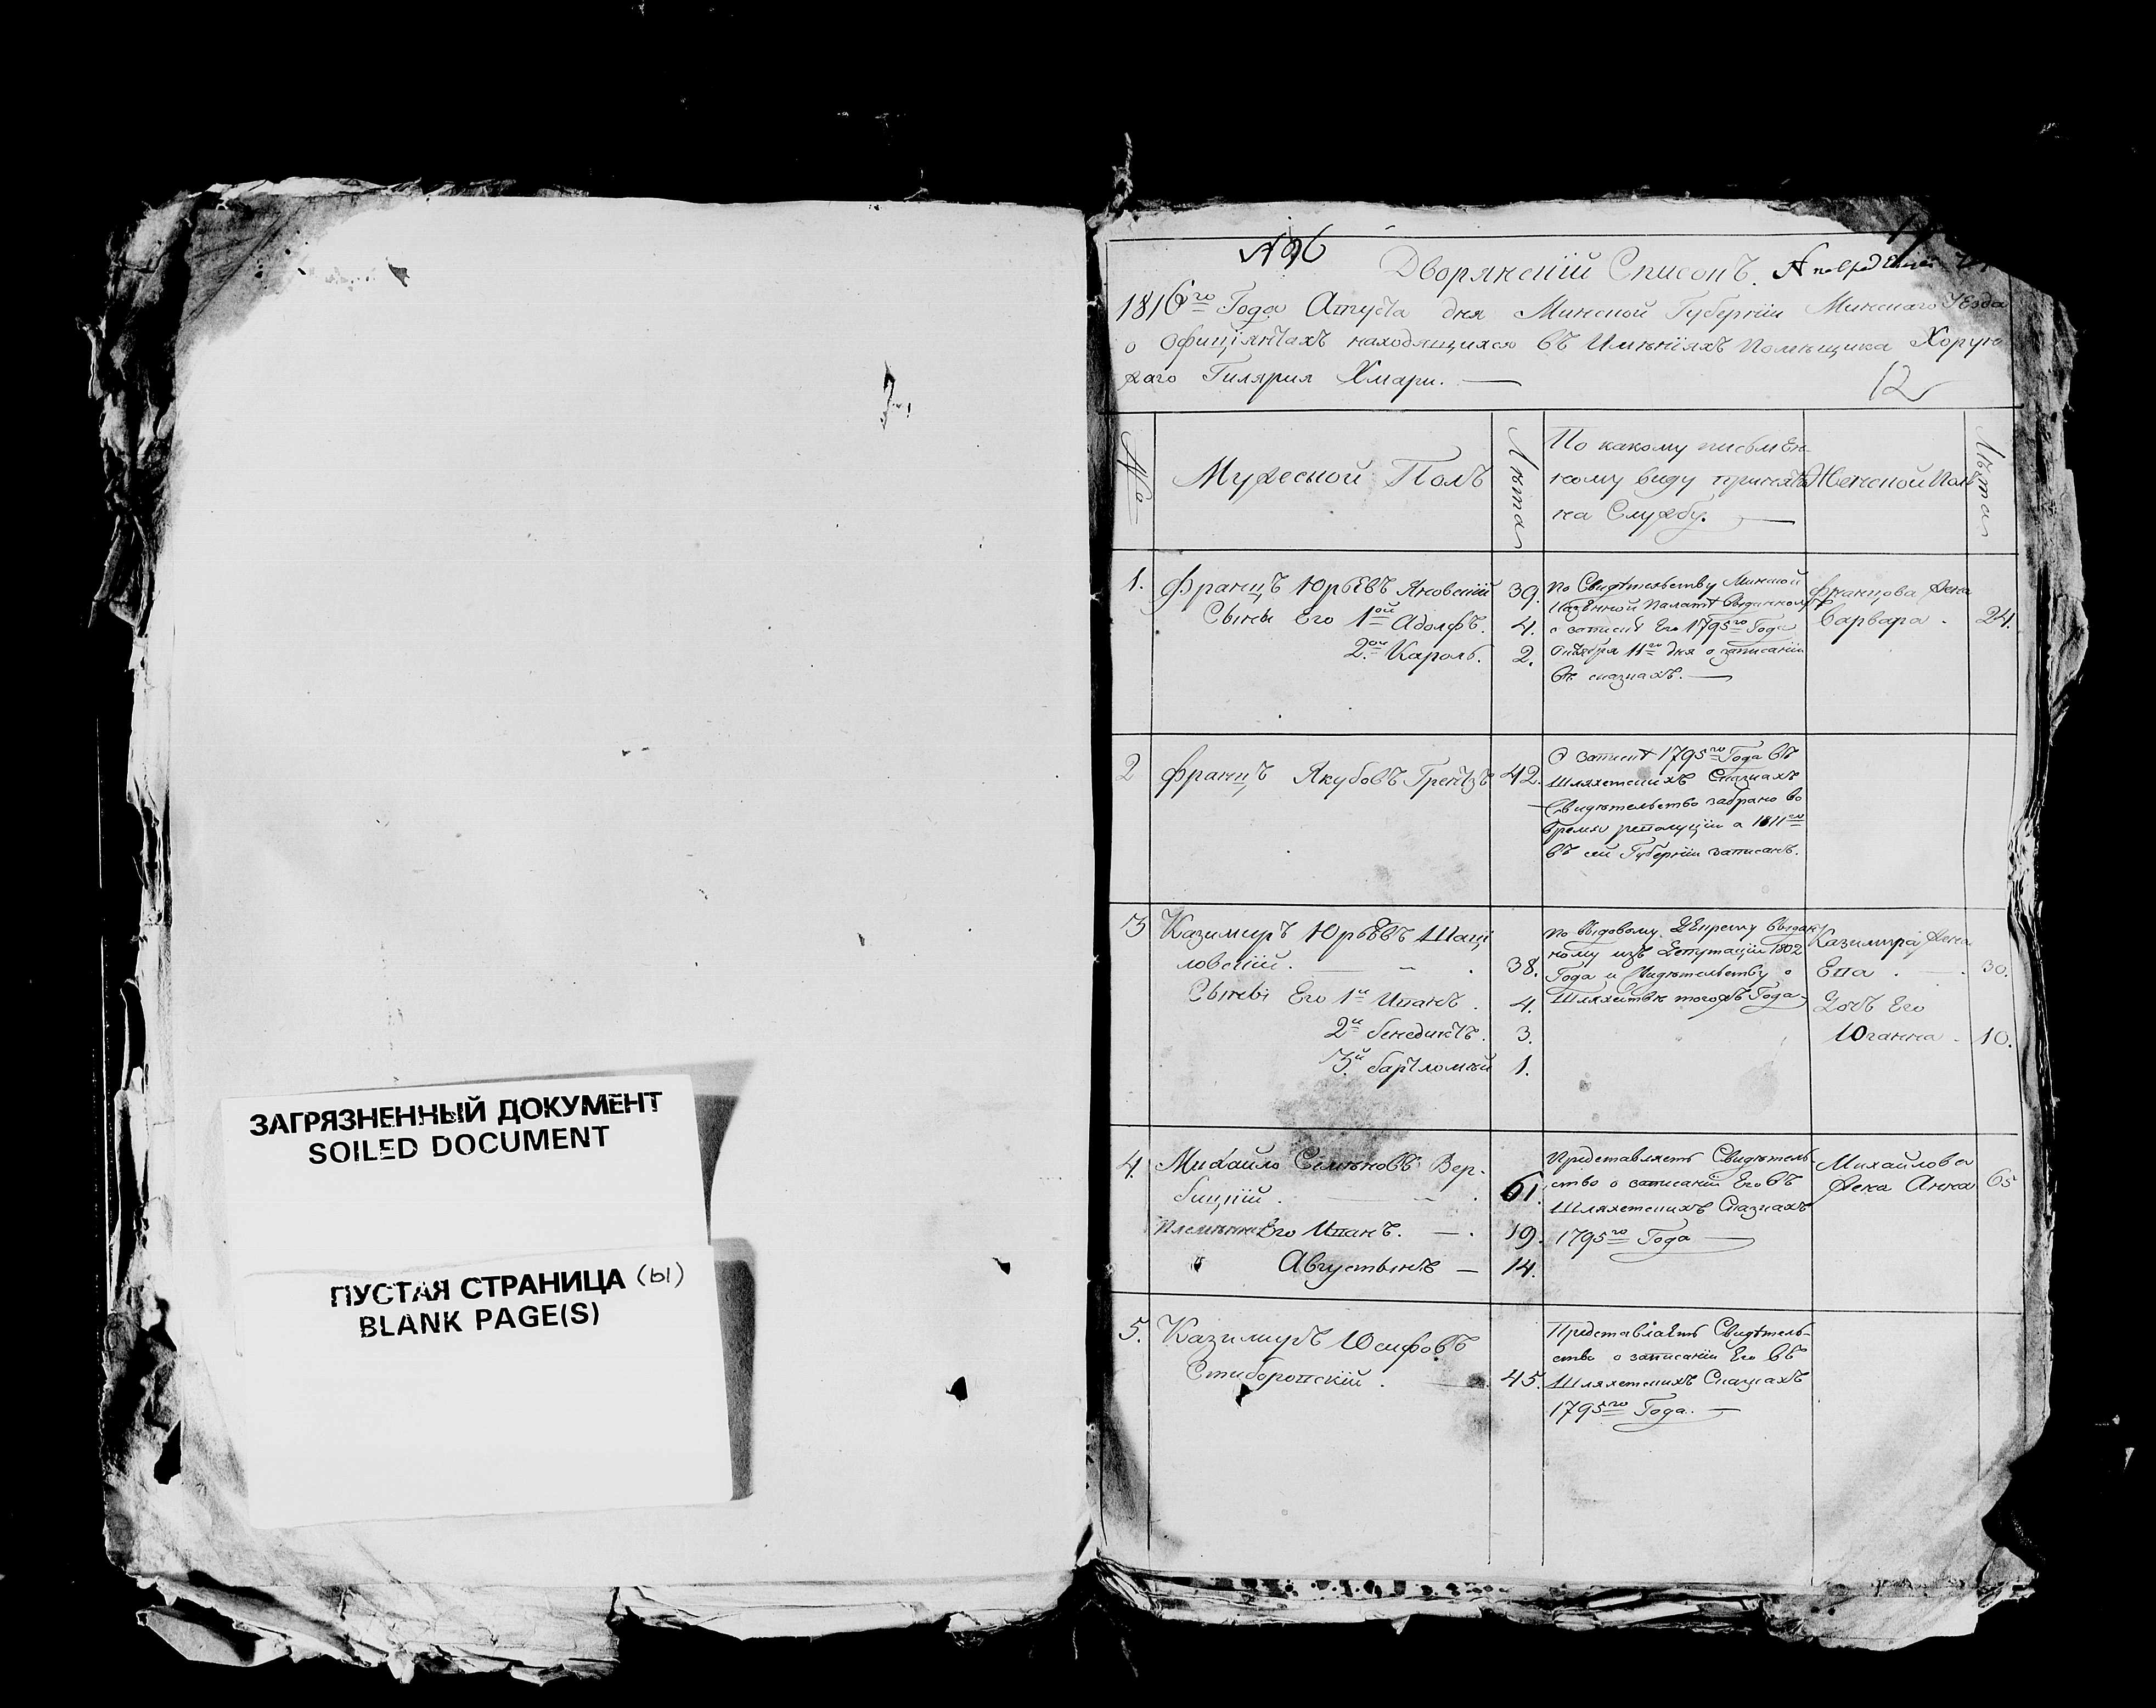 ЗАГРЯЗНЕННЫЙ ДОКУМЕНТ
SOILED DOCUMENT
ПУСТАЯ СТРАНИЦА (Ы)
BLANK PAGE(S)
Дворянскій Списокъ.
1816го Года Августа дня Минской Губерніи Минскаго Уезда
о Официянтахъ находящихся въ Имѣніяхъ Помѣщика Хорун-
жаго Гилярия Хмари.
12
№
Мужеской Полъ
Лѣта
По какому письмен-
ному виду принятъ
на Службу.
Женской Полъ
Лѣта
1. Францъ Юрьевъ Яновскій 39.
Сыны Его 1ой Адолфъ. 4.
2ой Кароль. 2.
По Свидѣтельству Минской
Казенной Палаты
о записи Его 1795го Года
Октября 11го дня о записаніи
въ сказкахъ.
Францова жена
Варвара. 24.
2 Францъ Якубовъ 42.
О записи 1795го Года въ
Шляхетскихъ Сказкахъ
Свидѣтельство забрано во
время революціи а 1811
въ сей Губерніи записанъ.
3 Казимиръ Юрьевъ Шаці
ловскій. 38.
Сыны Его 1й Иванъ. 4.
2й Бенедиктъ. 3.
3й Бартломѣй 1.
По выводовому Декрету выдан
ному изъ Депутаціи 1802
Года и Свидѣтельству о
Шляхетвѣ тогожъ Года
Казимира жена
Ева. 30.
Дочь Его
Юганна. 10.
4. Михайло Семѣновъ Вер-
бицкій. 61.
Племѣнникъ Его Иванъ. 19.
Августынъ 14.
Представляетъ Свидѣтель-
ство о записаніи Его въ
Шляхетскихъ Сказкахъ
1795го Года
Михайлова
жена Анна 65
5. Казимиръ Юсифовъ
Стиборовскій. 45.
Представляетъ Свидѣтель-
ство о записаніи Его въ
Шляхетскихъ Сказкахъ
1795го Года.